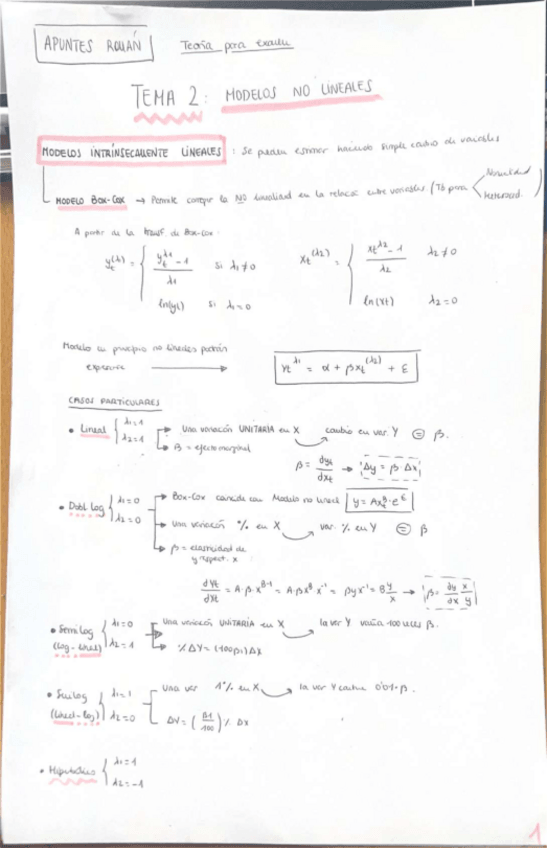 APUNTES ROLLÁN Teoría para examen
TEMA 2: MODELOS NO LINEALES
MODELOS INTRÍNSECAMENTE LINEALES: Se pueden estimar haciendo simple cambio de variables
MODELO BOX-COX → Permite corregir la NO linealidad en la relación entre variables. (Tb para Normalidad
Heteroced.)
A partir de la transf de Box-Cox:
yt^(λ1) = { (yt^λ1 - 1)/λ1 si λ1≠0 xt^(λ2) = { (xt^λ2 - 1)/λ2 λ2≠0
ln(yt) si λ1=0 ln(xt) λ2=0
Modelo en principio no lineales podrán
expresarse → yt^λ1 = α + βxt^(λ2) + ε
CASOS PARTICULARES
• Lineal { λ1=1 → Una variación UNITARIA en X cambio en var. Y = β.
λ2=1 → β = efecto marginal
β = dyt/dxt → Δy = β·Δx
• Dobl Log { λ1=0 → Box-Cox coincide con Modelo no lineal y = Axt^β·e^ε
λ2=0 → Una variación % en X var. % en Y = β
→ β = elasticidad de
y respect. x
dYt/dXt = A·β·x^β-1 = A·β x^β x^-1 = βyx^-1 = β y/x → β = dy/dx x/y
• Semilog { λ1=0 → Una variación UNITARIA en X la var Y varía 100 β.
(log-lineal) λ2=1 → %ΔY = (100β1)ΔX
• Semilog { λ1=1 Una var 1% en X la var Y cambia 0'01·β.
(lineal-log) λ2=0 ΔY = (β1/100) % ΔX
• Hiperbólico { λ1=1
λ2=-1
1